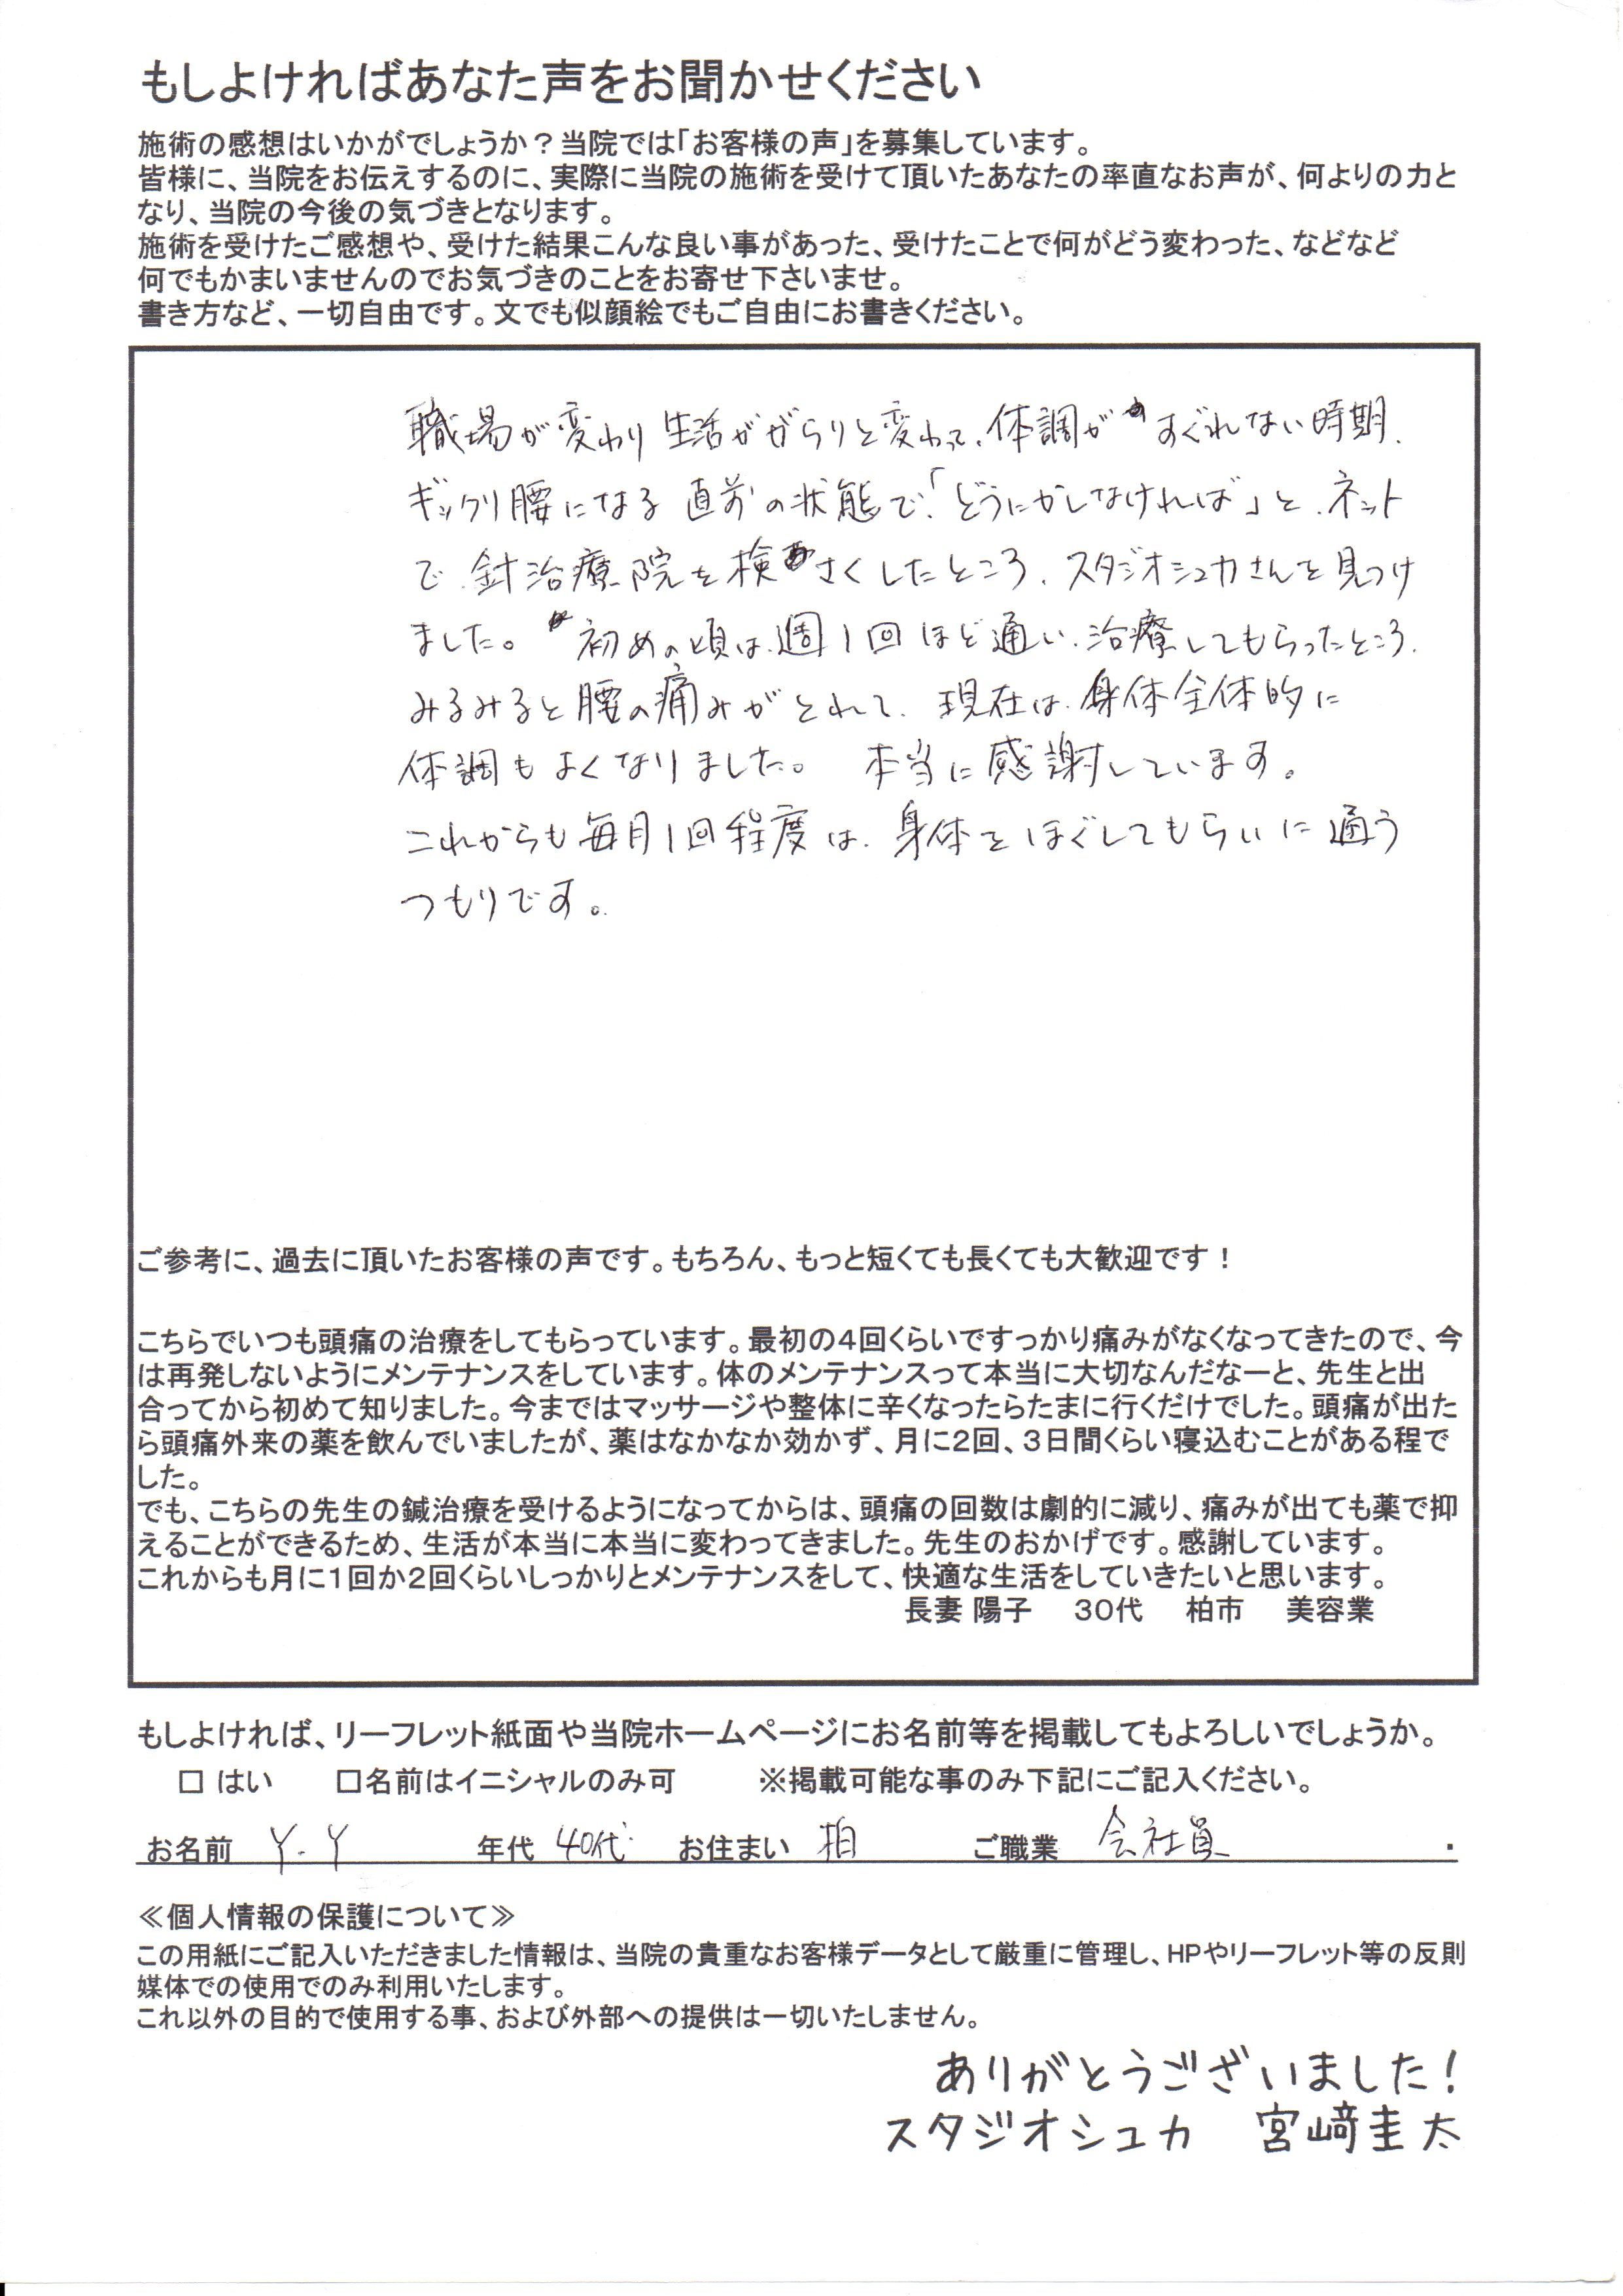 もしよければあなた声をお聞かせください
施術の感想はいかがでしょうか？当院では「お客様の声」を募集しています。
皆様に、当院をお伝えするのに、実際に当院の施術を受けて頂いたあなたの率直なお声が、何よりの力と
なり、当院の今後の気づきとなります。
施術を受けたご感想や、受けた結果こんな良い事があった、受けたことで何がどう変わった、などなど
何でもかまいませんのでお気づきのことをお寄せ下さいませ。
書き方など、一切自由です。文でも似顔絵でもご自由にお書きください。
職場が変わり生活ががらりと変わって、体調がすぐれない時期、
ギックリ腰になる直前の状態で、「どうにかしなければ」と、ネット
で、針治療院を検さくしたところ、スタジオシュカさんを見つけ
ました。初めの頃は、週1回ほど通い、治療してもらったところ、
みるみると腰の痛みがとれて、現在は、身体全体的に
体調もよくなりました。 本当に感謝しています。
これからも毎月1回程度は、身体をほぐしてもらいに通う
つもりです。
ご参考に、過去に頂いたお客様の声です。もちろん、もっと短くても長くても大歓迎です！
こちらでいつも頭痛の治療をしてもらっています。最初の４回くらいですっかり痛みがなくなってきたので、今
は再発しないようにメンテナンスをしています。体のメンテナンスって本当に大切なんだなーと、先生と出
合ってから初めて知りました。今まではマッサージや整体に辛くなったらたまに行くだけでした。頭痛が出た
ら頭痛外来の薬を飲んでいましたが、薬はなかなか効かず、月に２回、３日間くらい寝込むことがある程で
した。
でも、こちらの先生の鍼治療を受けるようになってからは、頭痛の回数は劇的に減り、痛みが出ても薬で抑
えることができるため、生活が本当に本当に変わってきました。先生のおかげです。感謝しています。
これからも月に１回か２回くらいしっかりとメンテナンスをして、快適な生活をしていきたいと思います。
長妻 陽子 ３０代 柏市 美容業
もしよければ、リーフレット紙面や当院ホームページにお名前等を掲載してもよろしいでしょうか。
□ はい □名前はイニシャルのみ可 ※掲載可能な事のみ下記にご記入ください。
お名前 Y.Y 年代 40代 お住まい 柏 ご職業 会社員 .
≪個人情報の保護について≫
この用紙にご記入いただきました情報は、当院の貴重なお客様データとして厳重に管理し、HPやリーフレット等の反則
媒体での使用でのみ利用いたします。
これ以外の目的で使用する事、および外部への提供は一切いたしません。
ありがとうございました！
スタジオシュカ 宮﨑圭太